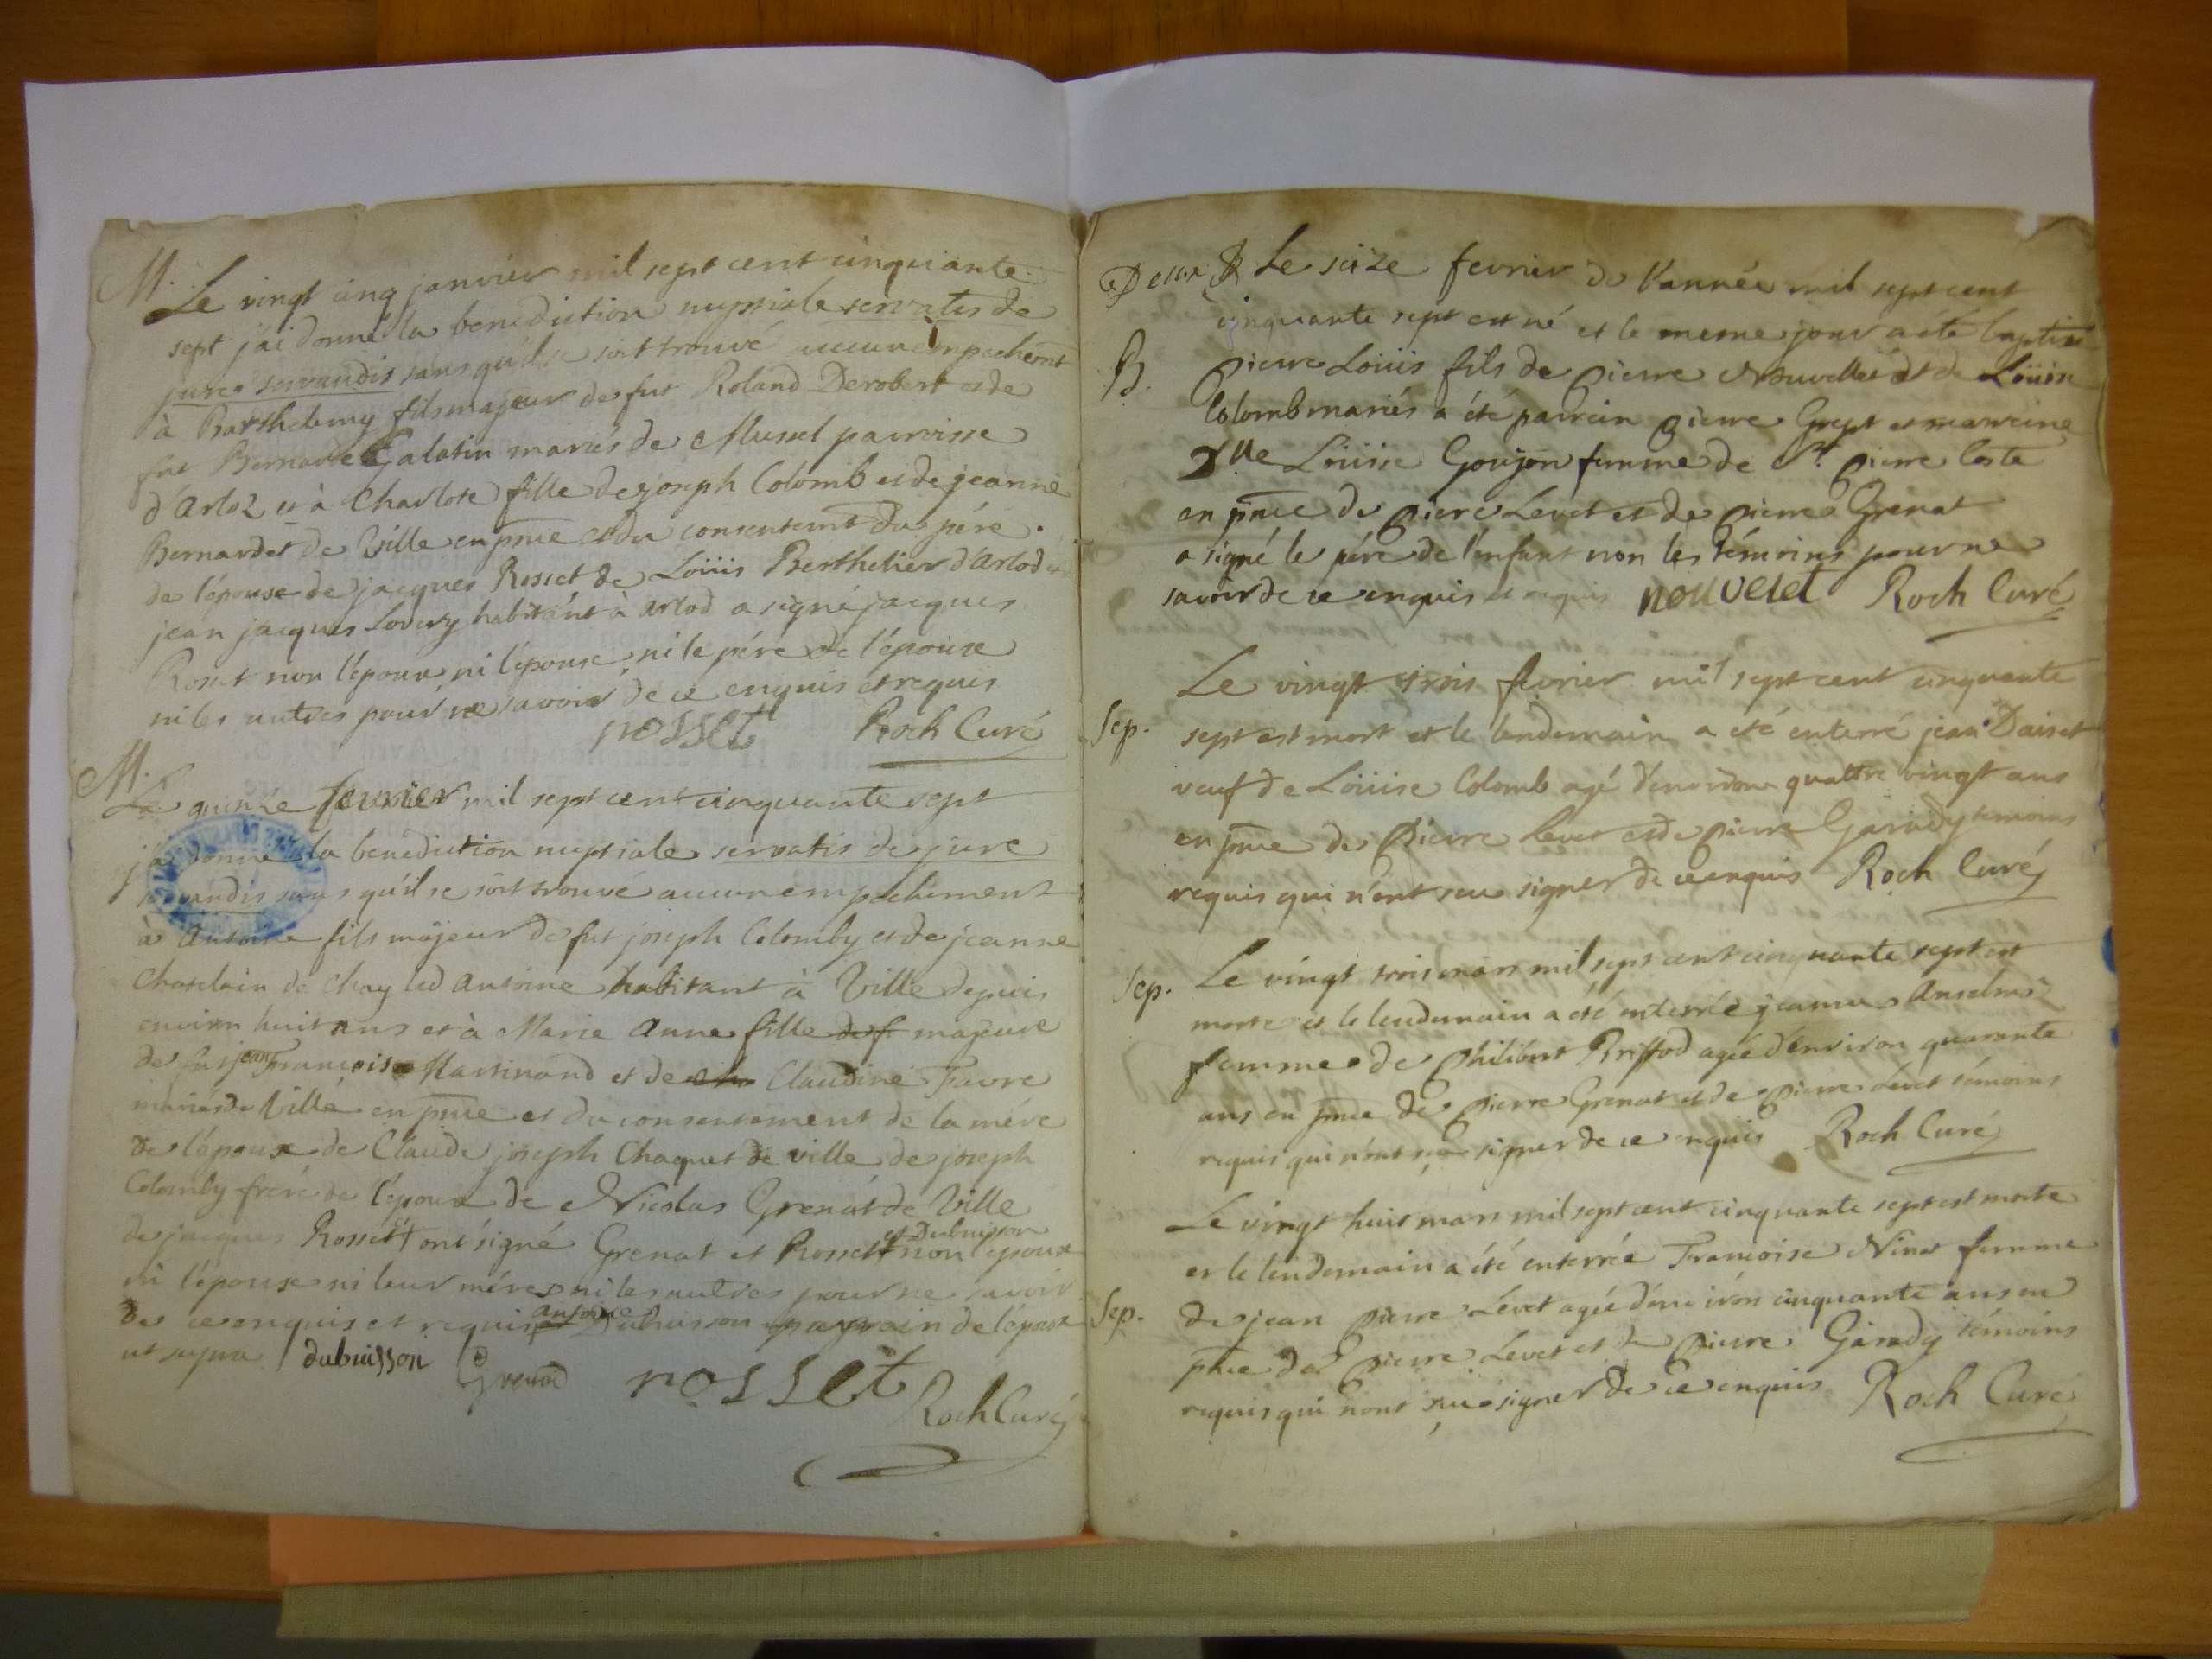 M.
Le vingt cinq janvier mil sept cent cinquante
sept j'ai donné la benediction nuptiale servatis de
jure servandis sans qu'il se soit trouvé aucun empechemt
à Barthelemy fils majeur de fut Roland Derobert et de
fut Bernarde Galatin mariés de Mussel parroisse
d'Arloz et à Charlote fille de joseph Colomb et de jeanne
Bernardet de Ville en pnce et du consentemt du pére
de l'épouse de jacques Rosset de Loüis Berthelier d'arlod et
jean jacques Lovery habitant à arlod a signé jacques
Rosset non l'époux ni l'épouse ni le pére de l'épouse
ni les autres pour ne savoir de ce enquis et requis
rosset Roch Curé
M.
Le quinze fevrier mil sept cent cinquante sept
j'ai donné la benediction nuptiale servatis de jure
servandis sans qu'il se soit trouvé aucun empechement
à Antoine fils majeur de fut joseph Colomby et de jeanne
Chatelain de Chay led Antoine habitant à Ville depuis
environ huit ans et à Marie Anne fille de f majeure
de fut jean François Martinand et de Claudine Favre
mariés de Ville en pnce et du consentement de la mére
de l'époux de Claude joseph Chaquet de ville de joseph
Colomby frere de l'époux de Nicolas Grenat de Ville
de jacques Rosset ont signé Grenat et Rosset et Dubuisson non l'époux
ni l'épouse ni leur méres ni les autres pour ne savoir
de ce enquis et requis antoine Dubuisson parrain de l'époux
ut supra dubuisson Grenad rosset
Roch Curé
Deux Le seize fevrier de l'année mil sept cent
cinquante sept est né et le meme jour a été baptisé
B. Pierre Loüis fils de Pierre Nouvellet et de Loüise
Colomb mariés a été parrain Pierre Grept et marreine
Dlle Loüise Goujon femme de Sr. Pierre Coste
en pnce de Pierre Levet et de Pierre Grenat
a signé le pére de l'enfant non les témoins pour ne
savoir de ce enquis et requis nouvelet Roch Curé
Le vingt trois fevrier mil sept cent cinquante
Sep. sept est mort et le lendemain a été enterré jean Daiset
veuf de Loüise Colomb agé d'environ quattre vingt ans
en pnce de Pierre Levet et de Pierre Garady temoins
requis qui n'ont seu signer de ce enquis Roch Curé
Sep. Le vingt trois mars mil sept cent cinquante sept est
morte et le lendemain a été enterrée jeanne Anselme
femme de Philibert Briffod agée d'environ quarante
ans en pnce de Pierre Grenat et de Pierre Levet témoins
requis qui n'ont sçu signer de ce enquis Roch Curé
Le vingt huit mars mil sept cent cinquante sept est morte
et le lendemain a été enterrée Françoise Ninet femme
Sep. de jean Pierre Levet agée d'environ cinquante ans en
pnce de Pierre Levet et de Pierre Garady témoins
requis qui n'ont sçu signer de ce enquis Roch Curé